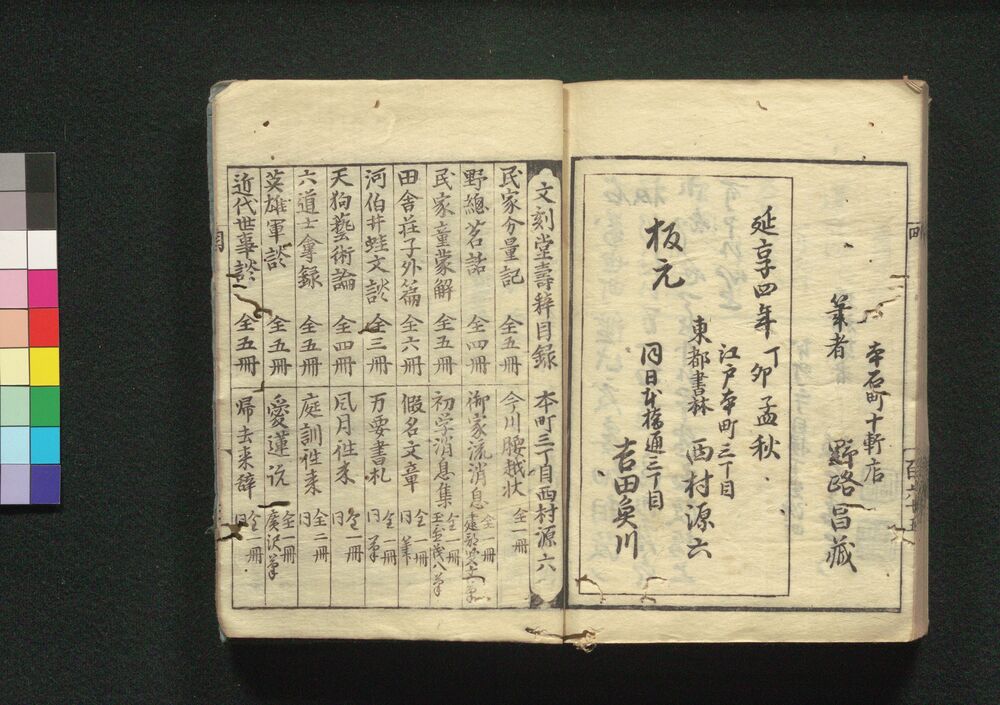 本石町十軒店
筆者 野路昌蔵
延享四年丁卯孟秋
江戸本町三丁目
東都書林 西村源六
板元
同日本橋通三丁目
吉田奐川
文刻堂壽梓目録 本町三丁目西村源六
民家分量記 全五冊 今川腰越状 全一冊
野總茗話 全四冊 御家流消息 全一冊
民家童蒙解 全五冊 初学消息集 全一冊
田舎荘子外篇 全六冊 假名文章 全一冊 同筆
河伯井蛙文談 全三冊 万要書札 全一冊 同筆
天狗藝術論 全四冊 風月往来 全一冊 同
六道士會録 全五冊 庭訓往来 全二冊 同
英雄軍談 全五冊 愛蓮説 全一冊 廣沢筆
近代世事談 全五冊 帰去来辞 全一冊 同